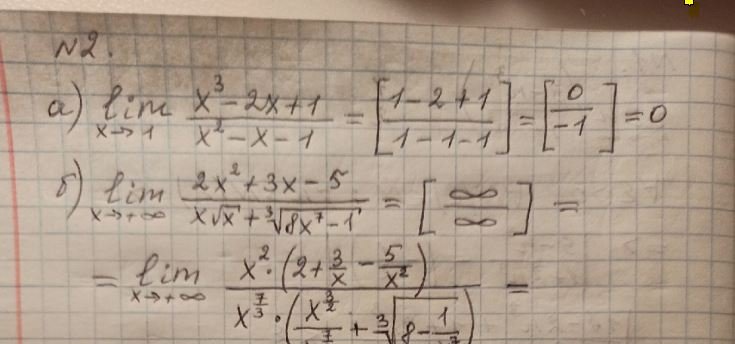 N2.
а) lim x→1 (x³-2x+1)/(x²-x-1) = [(1-2+1)/(1-1-1)] = [0/-1] = 0
б) lim x→+∞ (2x²+3x-5)/(x√x+³√(8x⁷-1)) = [∞/∞] =
= lim x→+∞ (x²·(2+3/x-5/x²))/(x^(7/3)·(x^(3/2)/ + ³√(8-1/))) =